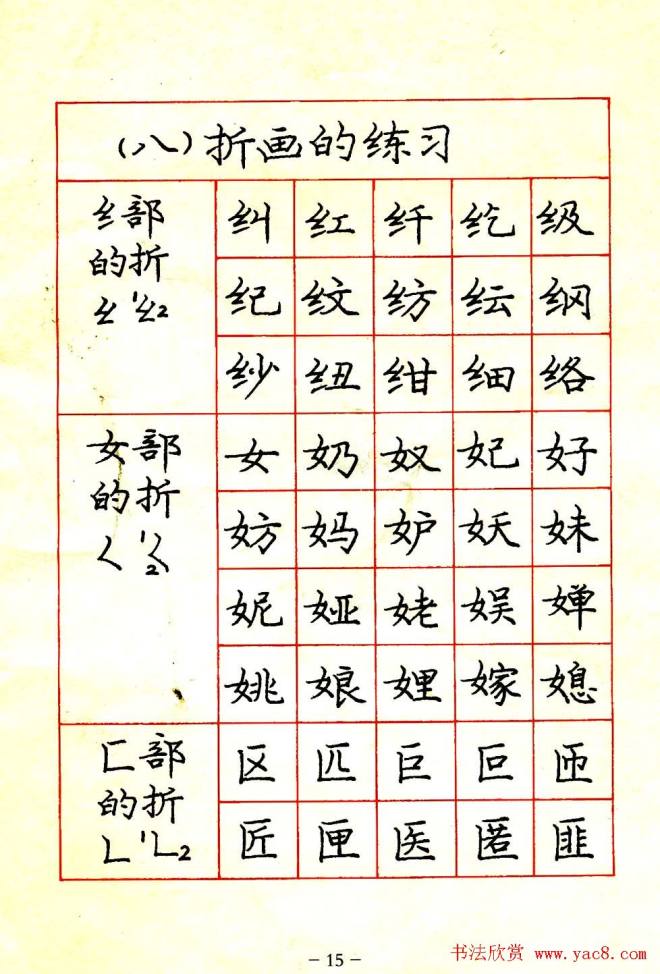 (八)折画的练习
纟部
的折
纠 红 纤 纥 级
纪 纹 纺 纭 纲
纱 纽 绀 细 络
女部
的折
女 奶 奴 妃 好
妨 妈 妒 妖 妹
妮 娅 姥 娱 婵
姚 娘 娌 嫁 媳
匚部
的折
区 匹 巨 叵 匝
匠 匣 医 匿 匪
- 15 -
书法欣赏 www.yac8.com